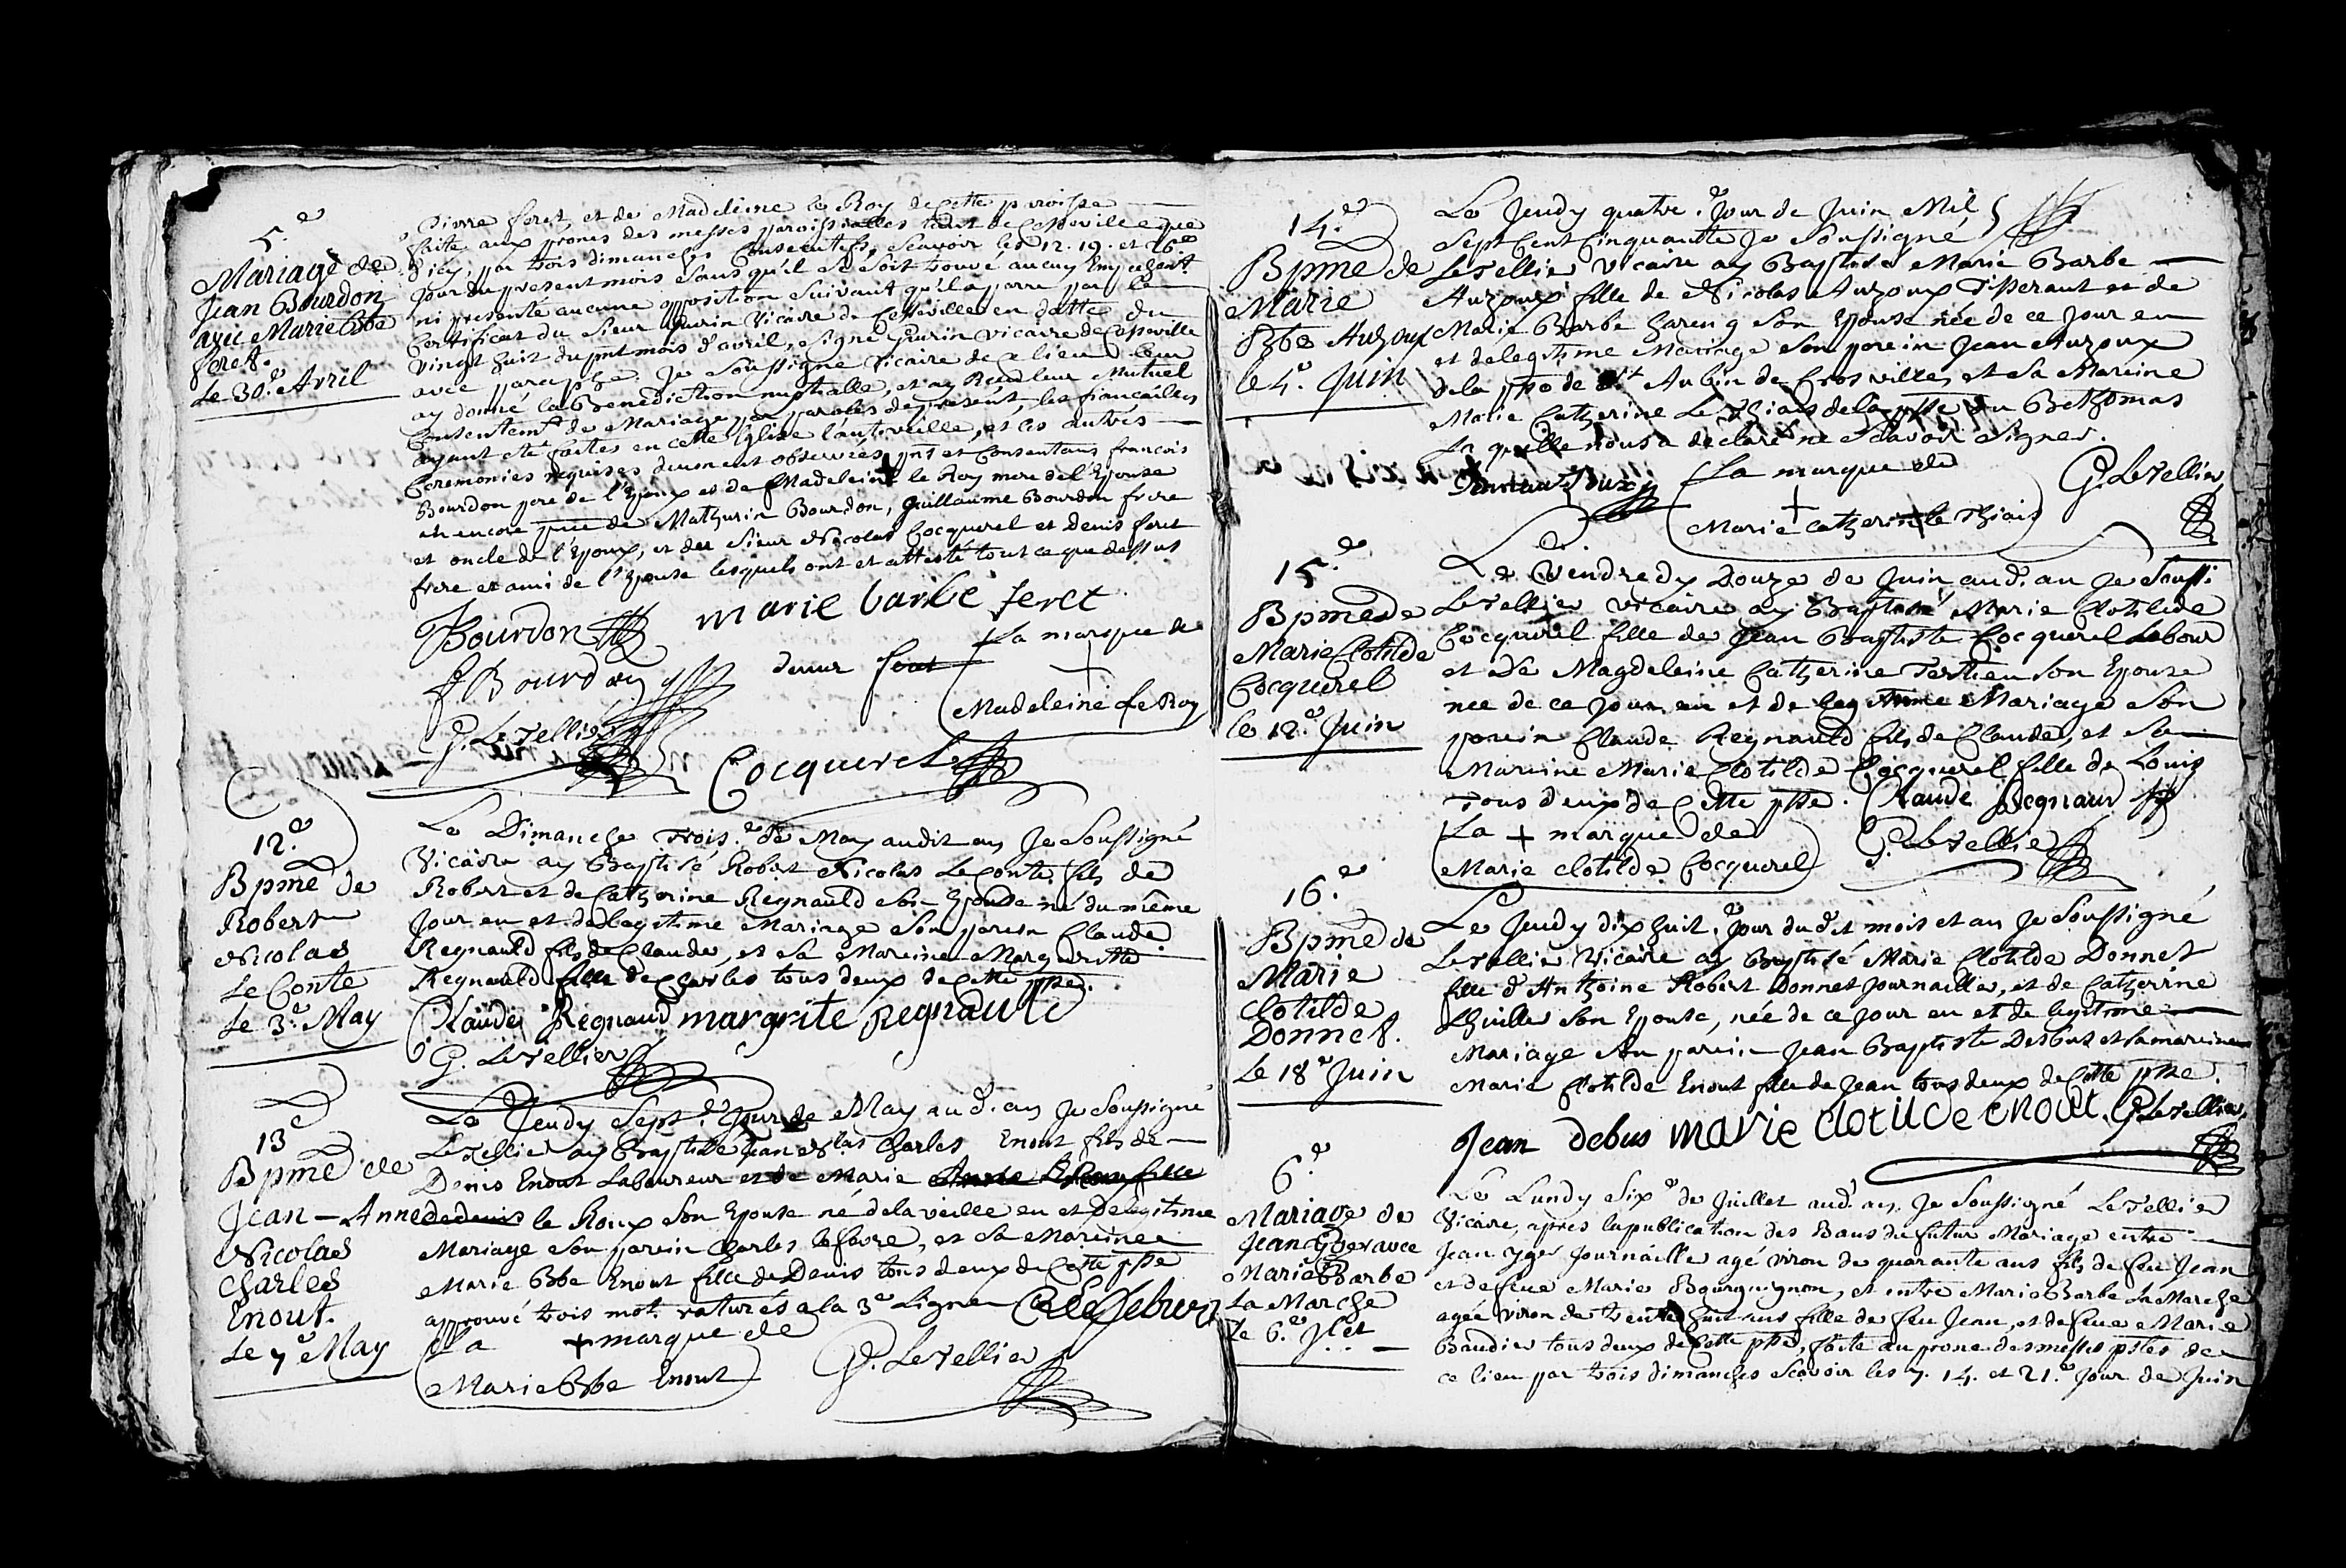 5.e
Mariage de
Jean Bourdon
avec Marie Bbe
feret.
Le 30.e Avril
Pierre feret, et de Madeleine le Roy de cette paroisse
faite aux prones des messes paroissialles tant de Cesseville que
d'icy, par trois dimanches Consecutifs, Scavoir les 12. 19. et 26.e
Jour du present mois sans qu'il se soit trouvé aucun Empechemt
ni presenté aucune opposition suivant qu'il aparre par le
Certificat du Sieur Guerin Vicaire de Cesseville en datte du
vingt huit du pnt mois d'avril, signé Guerin vicaire de Cesseville
avec paraphe. Je Soussigné Vicaire de ce lieu leur
ay donné la Benediction nuptialle, et ay Recu leur Mutuel
Consentemt de Mariage par paroles de present, les fiancailles
ayant eté faites en cette Eglise l'antiveille, et les autres
Ceremonies requises duement observées pnt et Consentans francois
Bourdon pere de l'Epoux et de Madeleine le Roy mere de l'Epouse
en encore pnce de Mathurin Bourdon, Guillaume Bourdon frere
et oncle de l'Epoux, et du Sieur Nicolas Cocquerel et denis feret
frere et ami de l'Epouse lesquels ont et attesté tout ce que dessus
Bourdon marie barbe feret
F Bourdon denis feret La marque de
+
Madeleine Le Roy
G. Letellier
Cocquerel
12.e
Bpme de
Robert
Nicolas
Le Conte
Le 3.e May
Le Dimanche Trois.e de May audit an Je Soussigné
Vicaire ay Baptisé Robert Nicolas Le Conte fils de
Robert et de Catherine Regnauld son Epouse né du même
Jour en et de legitime Mariage Son parein Claude
Regnauld fils de Claude, et sa Mareine Marguerite
Regnauld fille de Charles tous deux de cette psse.
Claude Regnaud margrite regnault
G. Letellier
13e
Bpme de
Jean-Anne
Nicolas
Charles
Enout.
Le 7.e May
Le Jeudy Sept.e Jour de May aud. an Je Soussigné
Letellier ay Baptisé Jean Nlas Charles Enout fils de
Denis Enout Laboureur et de Marie
de denis le Roux Son Epouse né de la veille en et de legitime
Mariage Son parein Charles lefevre, et Sa Mareine
Marie Bbe Enout fille de Denis tous deux de Cette psse
approuvé trois mot raturés a la 3e Ligne C lefebure
La + marque de
Marie Bbe Enout
G. Letellier
14.e
Bpme de
Marie
Bbe Auzoux
le 4.e Juin
Le Jeudy quatre.e Jour de Juin Mil
Sept Cent Cinquante Je Soussigné
Letellier Vicaire ay Baptisé Marie Barbe
Auzoux fille de Nicolas Auzoux Tisserant et de
Marie Barbe hareng Son Epouse née de ce Jour en
et de legitime Mariage Son parein Jean Auzoux
de la psse de St Aubin de Crosville, et Sa Mareine
Marie Catherine Le Thiais de la psse du Bethomas
la quelle nous a declaré ne Scavoir Signer.
La marque de
+
Marie Catherine le Thiais
G. Letellier
15.e
Bpme de
Marie Clotilde
Cocquerel
le 12.e Juin
Le Vendredy Douze de Juin aud. an Je Soussi.
Letellier vicaire ay Baptisé Marie Clotilde
Cocquerel fille de Jean Baptiste Cocquerel Labour
et De Magdeleine Catherine Tertien Son Epouse
née de ce Jour en et de legitime Mariage Son
parein Claude Regnauld fils de Claude, et Sa
Mareine Marie Clotilde Cocquerel fille de Louis
Tous deux de Cette psse. Claude Regnaud
La + marque de
Marie Clotilde Cocquerel
G. Letellier
16.e
Bpme de
Marie
Clotilde
Donnet.
Le 18.e Juin
Le Jeudy dix huit.e Jour du dit mois et an Je Soussigné
Letellier Vicaire ay Baptisé Marie Clotilde Donnet
fille d'Anthoine Robert Donnet Journaillier, et de Catherine
Lhuillier Son Epouse, née de ce Jour en et de legitime
Mariage Son parein Jean Baptiste Debus et Sa mareine
Marie Clotilde Enout fille de Jean tous deux de Cette psse.
Jean debus marie clotilde enout G. Letellier
6.e
Mariage de
Jean Yger avec
Marie Barbe
La Marche
Le 6.e Jllet
Le Lundy Six.e de Juillet aud. an, Je Soussigné Letellier
Vicaire, après la publication des Bans du futur Mariage entre
Jean Yger Journaillier agé viron de quarante ans fils de feu Jean
et de feue Marie Bourguignon, et entre Marie Barbe La Marche
agée viron de trente huit ans fille de feu Jean, et de feue Marie
Baudier tous deux de Cette psse, faite au prone des messes pslles de
ce lieu par trois dimanches Scavoir les 7. 14. et 21.e Jour de Juin